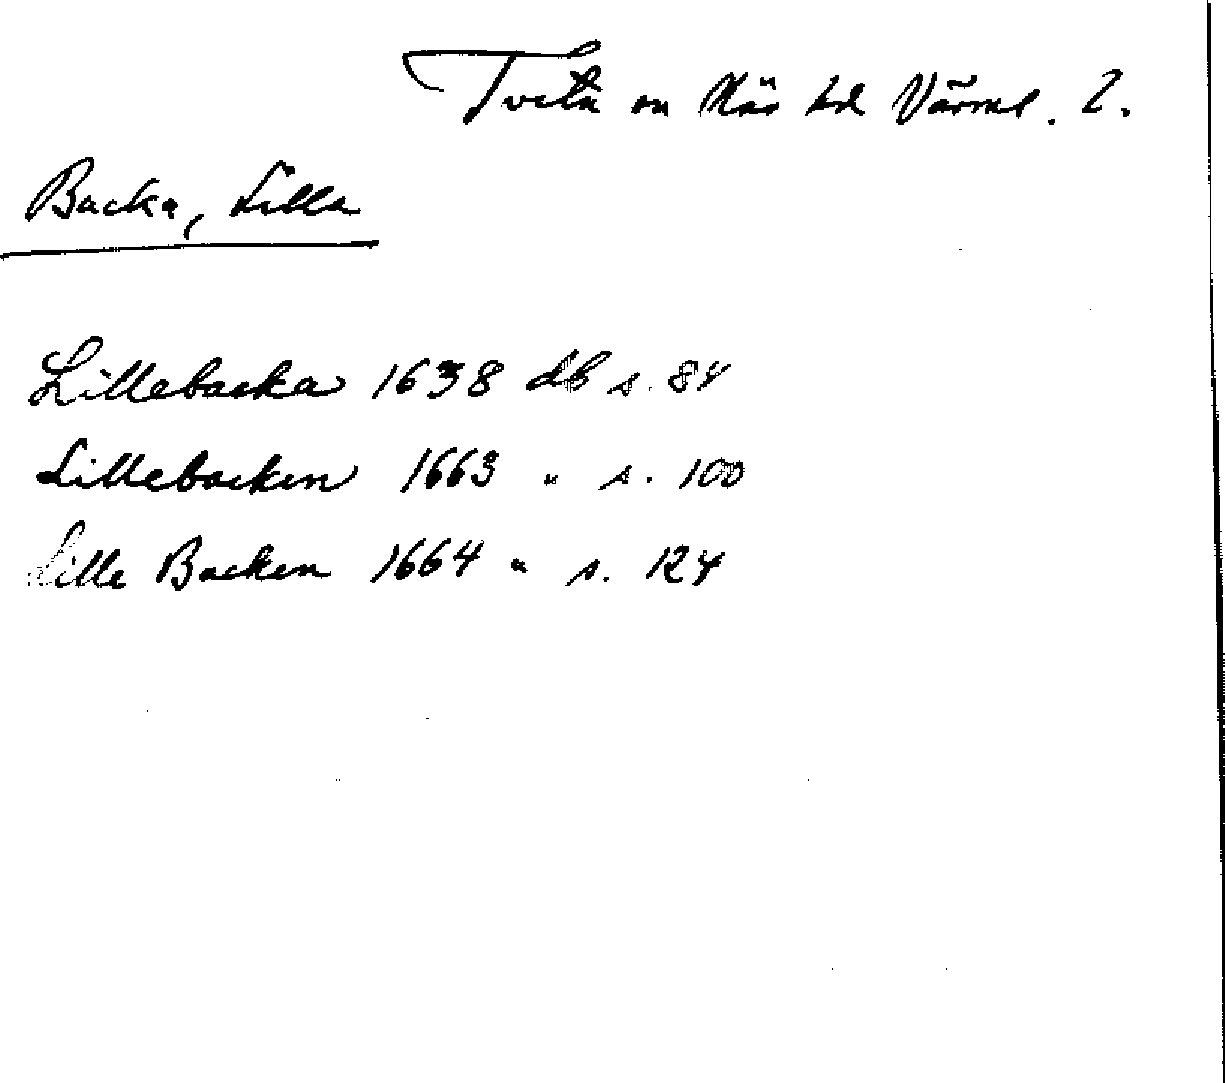 Tveta sn Näs hd Värml. 2.
Backa, Lilla
Lillebacka 1638 db s. 84
Lillebacken 1663 " s. 100
Lille Backen 1664 " s. 124